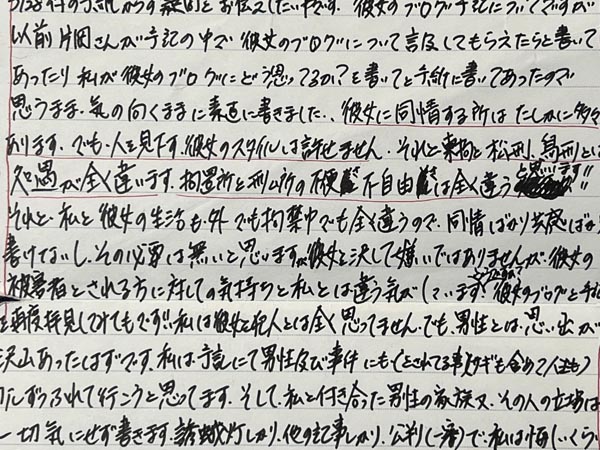 以前片岡さんが手記の中で彼女のブログについて言及してもらえたらと書いて
あったり私が彼女のブログにどう思ってるか？を書いてと手紙に書いてあったので
思うまま、気の向くままに素直に書きました、彼女に同情する所はたしかに多々
あります。でも、人を見下す彼女のスタイルは許せません。それと東拘と松刑、鳥刑とは
処遇が全く違います。拘置所と刑ム所の不便 不自由 は全く違うと思います!!
それと、私と彼女の生活も、外でも拘禁中でも全く違うので、同情ばかり共感ばかり
書けないし、その必要は無いと思いますが彼女を決して嫌いではありませんが、彼女の
被害者とされる方に対しての気持ちと私とは違う気がしています。彼女のブログと手記
を再度拝見してみてもです!!私は彼女を犯人とは全く思ってません。でも、男性とは、思い出が
沢山あったはずです。私は、手記にて男性及び事件にも(とされてる事タギも含め
少しずつふれて行こうと思ってます。そして、私と付き合った男性の家族又、その人の立場は
一切気にせず書きます。誘蛾灯しかり、他の記事しかり、公判(一審)で、私は悔しいくらい